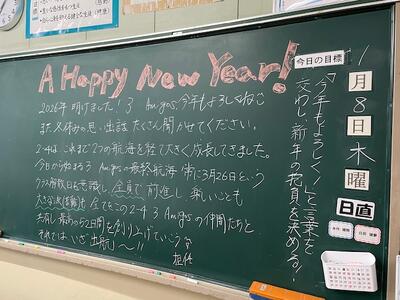 A HAPPY NEW YEAR!
2026年 明けました！3 Amigos、今年もよろしくね♡
また、冬休みの思い出話、たくさん聞かせてください。
2-4は、これまで2つの航海を経て大きく成長してきました。
今日から始まる3 Amigosの最終航海
3月26日という
クラス解散日も意識し、全員で前進し、楽しいことも
全てをこの2-4 3 Amigosの仲間たちと
共有し、最高の
を創り上げていこうな
それではいざ、出航〜!!
担任
今日の目標
「今年もよろしく！」と言葉を
交わし、新年の抱負を決める！
1月8日木曜
日直